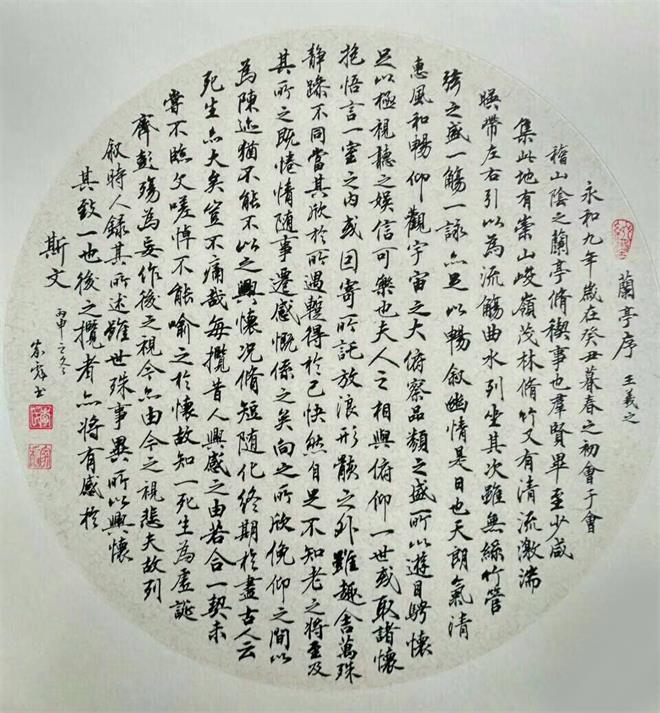 蘭亭序 王羲之
永和九年歲在癸丑暮春之初會于會
稽山陰之蘭亭脩稧事也羣賢畢至少咸
集此地有崇山峻嶺茂林脩竹又有清流激湍
暎帶左右引以為流觴曲水列坐其次雖無絲竹管
弦之盛一觴一詠亦足以暢敘幽情是日也天朗氣清
惠風和暢仰觀宇宙之大俯察品類之盛所以遊目騁懷
足以極視聽之娛信可樂也夫人之相與俯仰一世或取諸懷
抱悟言一室之內或因寄所託放浪形骸之外雖趣舍萬殊
静躁不同當其欣於所遇暫得於己快然自足不知老之將至及
其所之既惓情随事遷感慨係之矣向之所欣俛仰之間以
為陳迹猶不能不以之興懷況脩短随化終期於盡古人云
死生亦大矣豈不痛哉每攬昔人興感之由若合一契未
嘗不臨文嗟悼不能喻之於懷故知一死生為虛誕
齊彭殤為妄作後之視今亦由今之視悲夫故列
敘時人錄其所述雖世殊事異所以興懷
其致一也後之攬者亦將有感於
斯文
丙申之冬
書